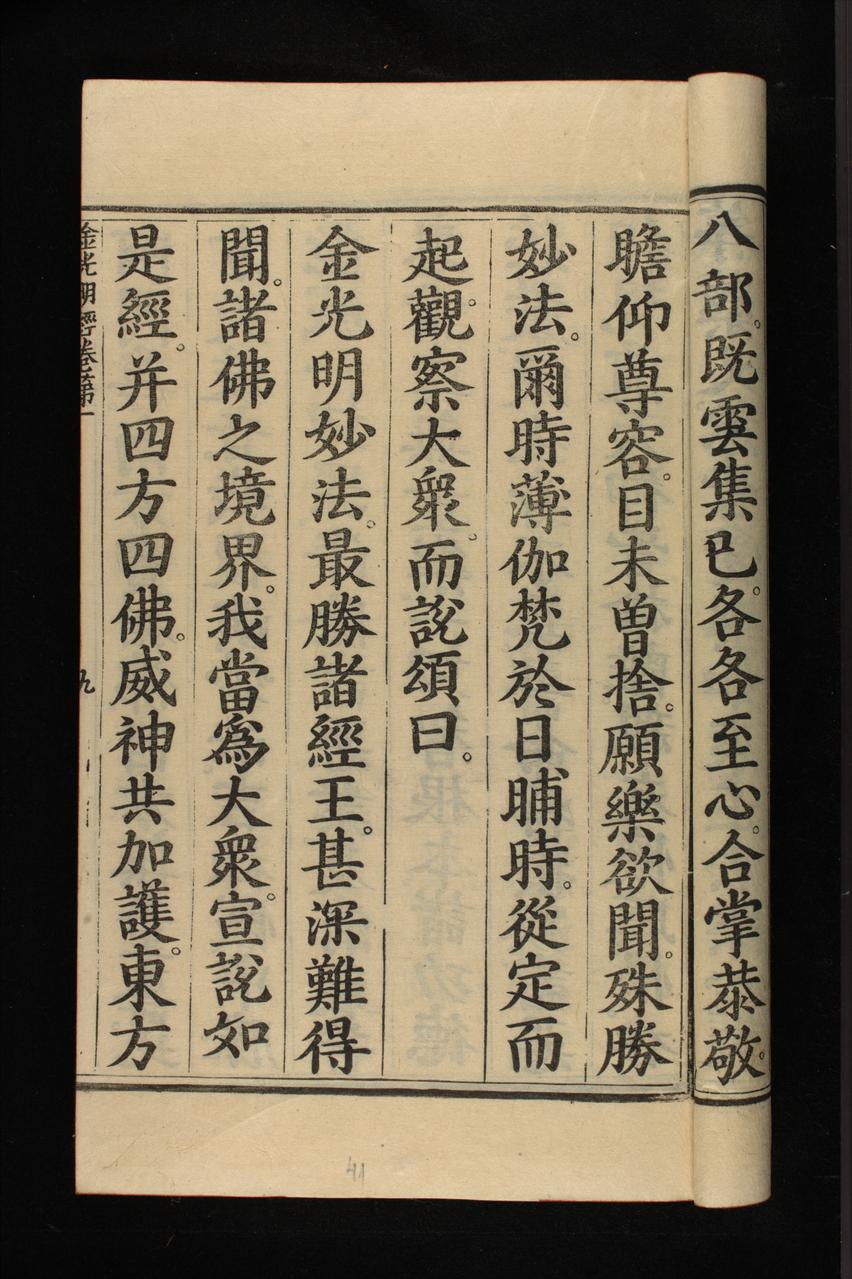 八部。既雲集已。各各至心。合掌恭敬。
瞻仰尊容。目未曾捨。願樂欲聞。殊勝
妙法。爾時薄伽梵於日晡時。從定而
起。觀察大衆。而說頌曰。
金光明妙法。最勝諸經王。甚深難得
聞。諸佛之境界。我當爲大衆。宣說如
是經。并四方四佛。威神共加護。東方
金光明經卷第一
九
41